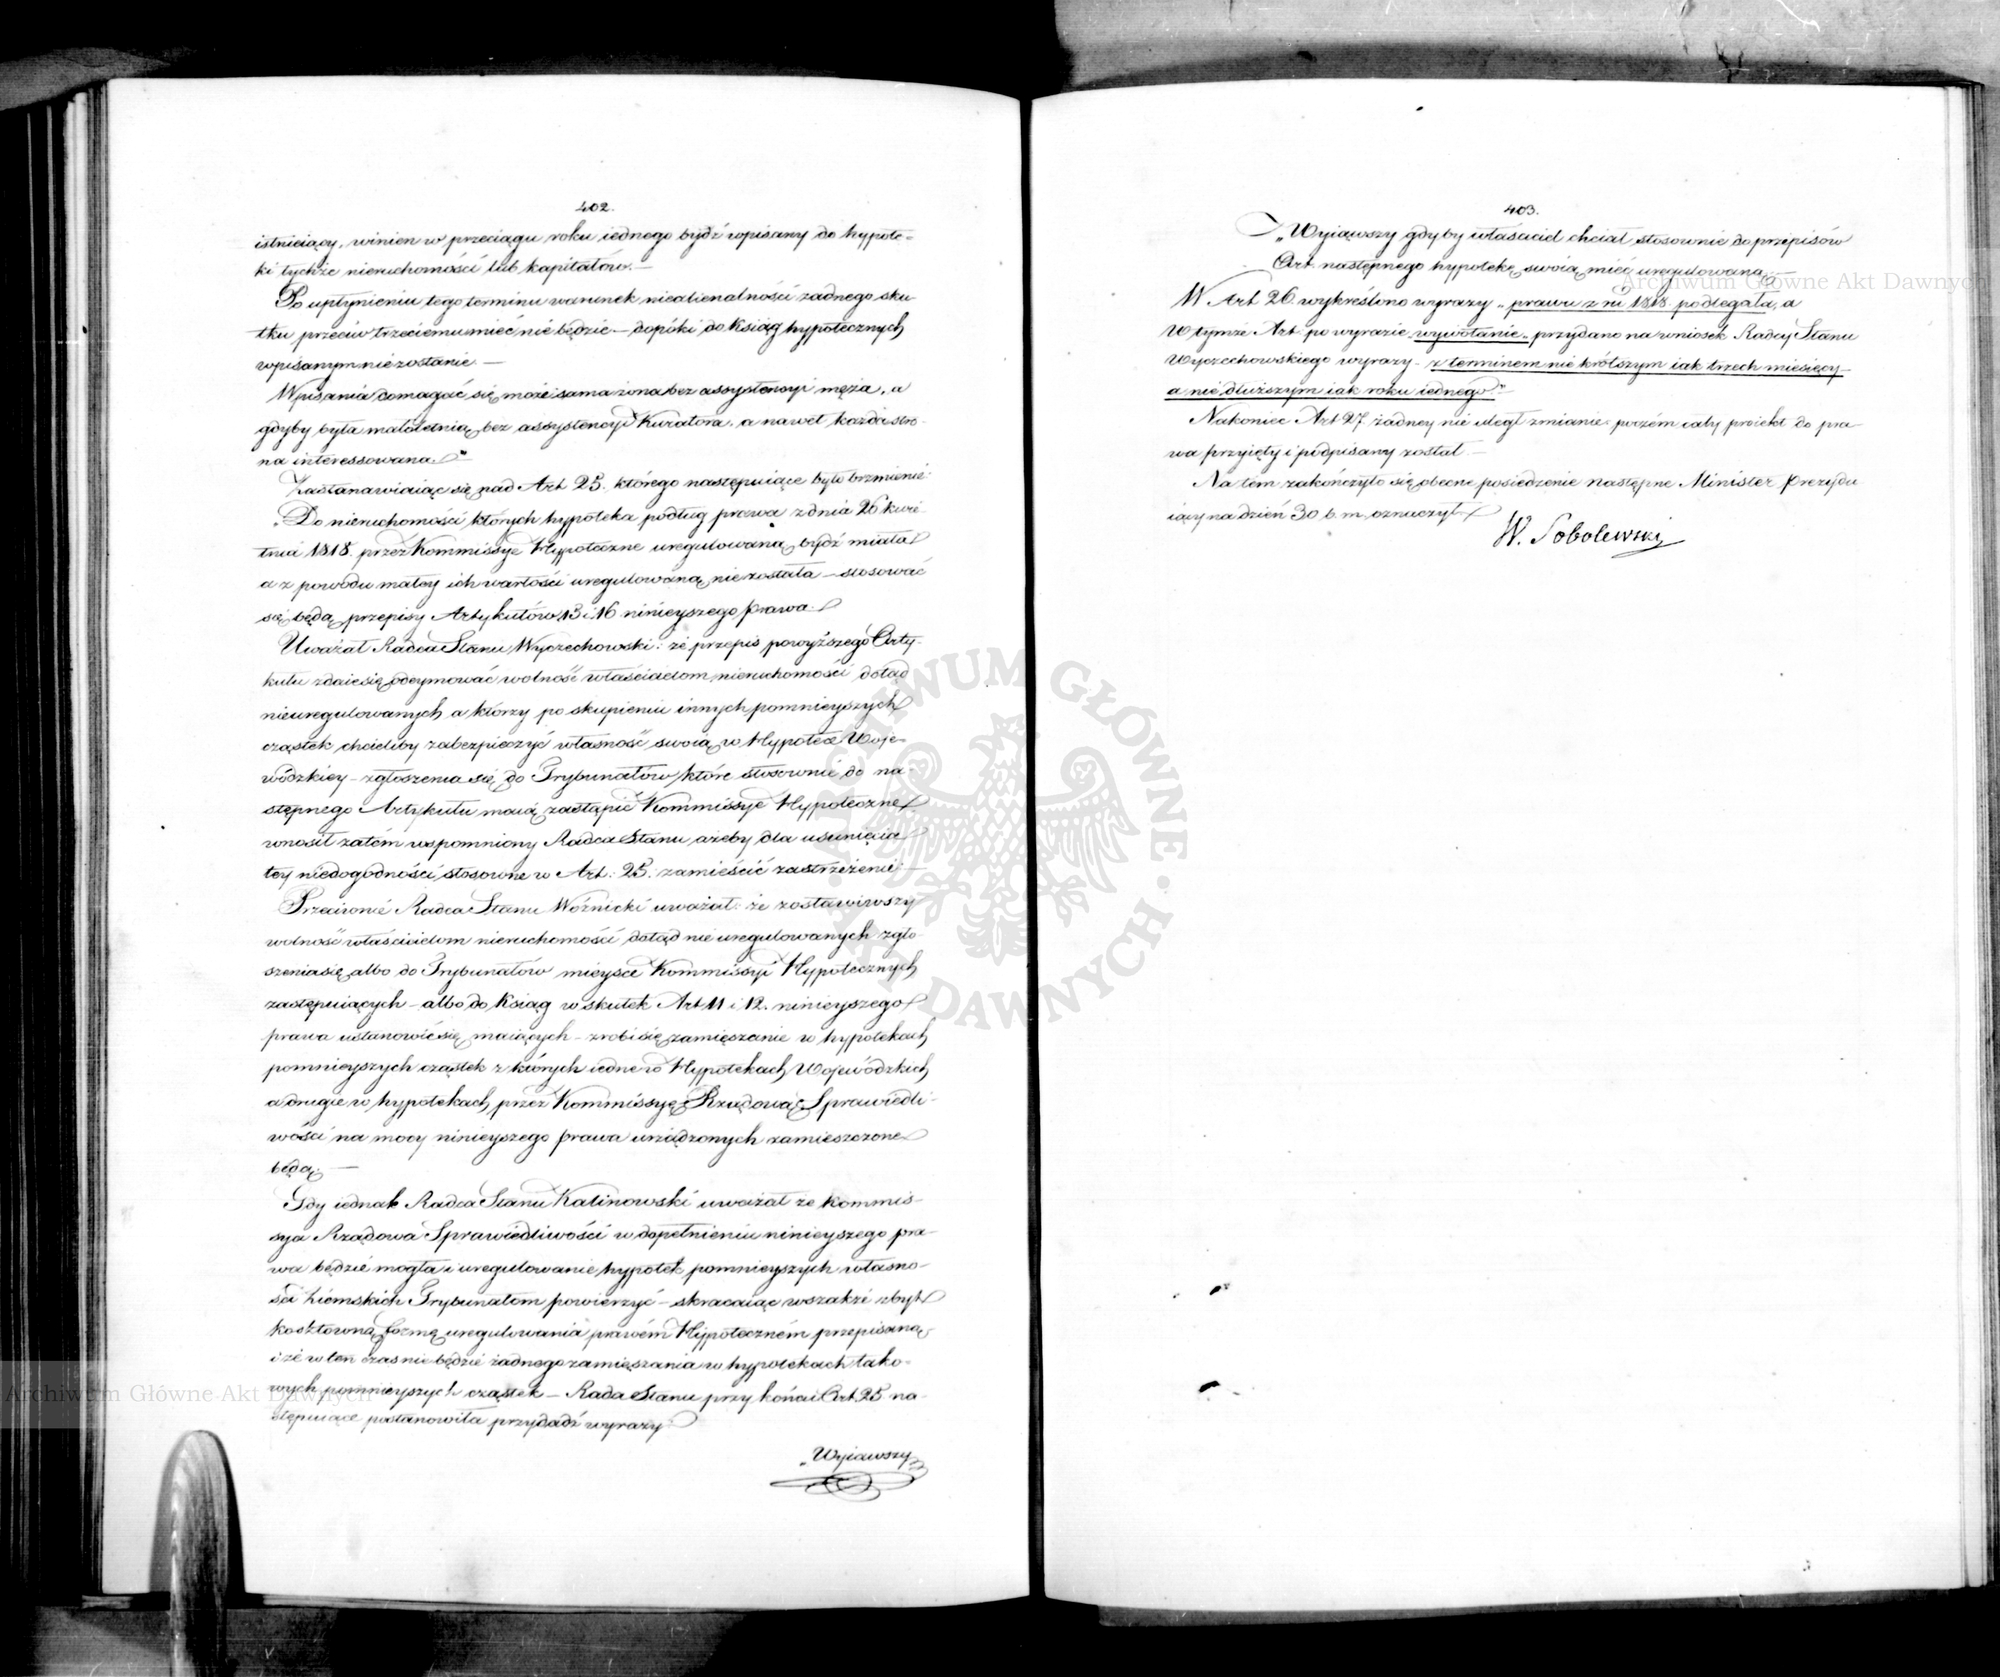 402.
istnieiący, winien w przeciągu roku iednego bydź wpisany do hypote-
ki tychże nieruchomości lub kapitałów.—
Po upłynieniu tego terminu warunek niealienalności żadnego sku-
tku przeciw trzeciemu mieć nie będzie — dopóki do Ksiąg hypotecznych
wpisanym nie zostanie —
Wpisania domagać się może sama żona bez assystencyi męża, a
gdyby była małoletnią, bez assystencyi Kuratora, a nawet każda stro-
na interessowana."
Zastanawiaiąc się nad Art 25. którego następuiące było brzmienie:
"Do nieruchomości których hypoteka podług prawa z dnia 26 kwie-
tnia 1818. przez Kommissye Hypoteczne uregulowaną bydź miała
a z powodu małey ich wartości uregulowaną nie została — stosować
się będą przepisy Artykułów 13 i 16 ninieyszego prawa.
Uważał Radca Stanu Wyczechowski: że przepis powyższego Arty-
kułu zdaie się odeymować wolność właścicielom nieruchomości dotąd
nieuregulowanych a którzy po skupieniu innych pomnieyszych
cząstek chcieliby zabezpieczyć własność swoią w Hypotece Woje-
wódzkiey — zgłoszenia się do Trybunałów, które stosownie do na-
stępnego Artykułu maią zastąpić Kommissye Hypoteczne
wnosił zatém wspomniony Radca Stanu ażeby dla usunięcia
tey niedogodności stosowne w Art: 25. zamieścić zastrzeżenie: —
Przeciwnie Radca Stanu Woźnicki uważał: że zostawiwszy
wolność właścicielom nieruchomości dotąd nie uregulowanych zgło-
szenia się albo do Trybunałów mieysce Kommissyi Hypotecznych
zastępuiących — albo do Ksiąg w skutek Art 11 i 12. ninieyszego
prawa ustanowić się maiących — zrobi się zamięszanie w hypotekach
pomnieyszych cząstek z których iedne w Hypotekach Wojewódzkich
a drugie w hypotekach przez Kommissyę Rządową Sprawiedli-
wości na mocy ninieyszego prawa urządzonych zamieszczone
będą. —
Gdy iednak Radca Stanu Kalinowski uważał że Kommis-
sya Rządowa Sprawiedliwości w dopełnieniu ninieyszego pra-
wa będzie mogła i uregulowanie hypotek pomnieyszych własno-
ści Ziemskich Trybunałom powierzyć — skracaiąc wszakże zbyt
kosztowną formę uregulowania prawem Hypoteczném przepisaną,
i że w ten czas nie będzie żadnego zamięszania w hypotekach tako-
wych pomnieyszych cząstek — Rada Stanu przy końcu Art. 25 na-
stępuiące postanowiła przydadź wyrazy:
"Wyiąwszy
403.
"Wyiąwszy gdyby właściciel chciał stosownie do przepisów
Art. następnego hypotekę swoią mieć uregulowaną. —
W Art 26. wykreślono wyrazy "prawu z ru 1818. podlegała, a
W tymże Art. po wyrazie "wywołanie" przydano na wniosek Radcy Stanu
Wyczechowskiego wyrazy — z terminem nie krótszym iak trzech miesięcy
a nie dłuższym iak roku iednego" —
Nakoniec Art 27. żadney nie uległ zmianie: poczém cały proiekt do pra-
wa przyięty i podpisany został —
Na tem zakończyło się obecne posiedzenie następne Minister Prezydu
iący na dzień 30 b. m. oznaczył
W. Sobolewski
Archiwum Główne Akt Dawnych
Archiwum Główne Akt Dawnych
ARCHIWUM GŁÓWNE · AKT DAWNYCH ·